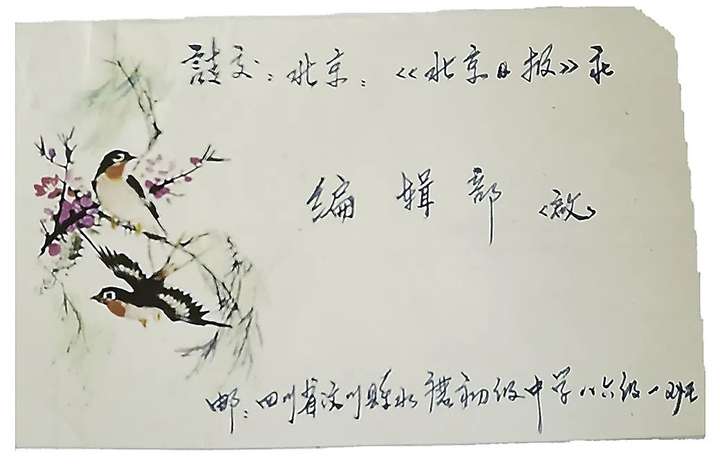 請交：北京：《北京日报》
编辑部
邮：四川省汶川縣水磨初级中学八六级一班